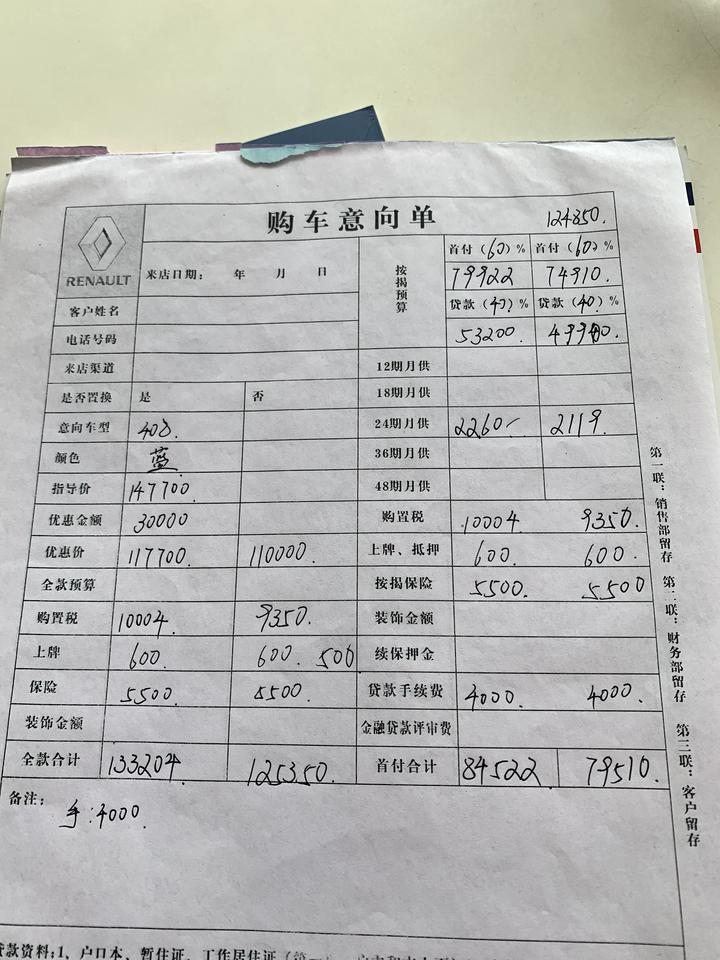 购车意向单
124850.
RENAULT
来店日期： 年 月 日
按揭预算
首付（60）% 首付（60）%
79922 74910.
客户姓名
贷款（40）% 贷款（40）%
电话号码
53200. 49940.
来店渠道
12期月供
是否置换 是 否
18期月供
意向车型 408.
24期月供 2260 2119.
颜色 蓝
36期月供
指导价 147700
48期月供
优惠金额 30000
购置税 10004 9350.
优惠价 117700. 110000.
上牌、抵押 600. 600.
全款预算
按揭保险 5500. 5500
购置税 10004. 9350.
装饰金额
上牌 600. 600. 500
续保押金
保险 5500. 5500.
贷款手续费 4000. 4000.
装饰金额
金融贷款评审费
全款合计 133204. 125350.
首付合计 84522 79510.
备注：
手：4000.
第一联：销售部留存 第二联：财务部留存 第三联：客户留存
贷款资料：1、户口本、暂住证、工作居住证